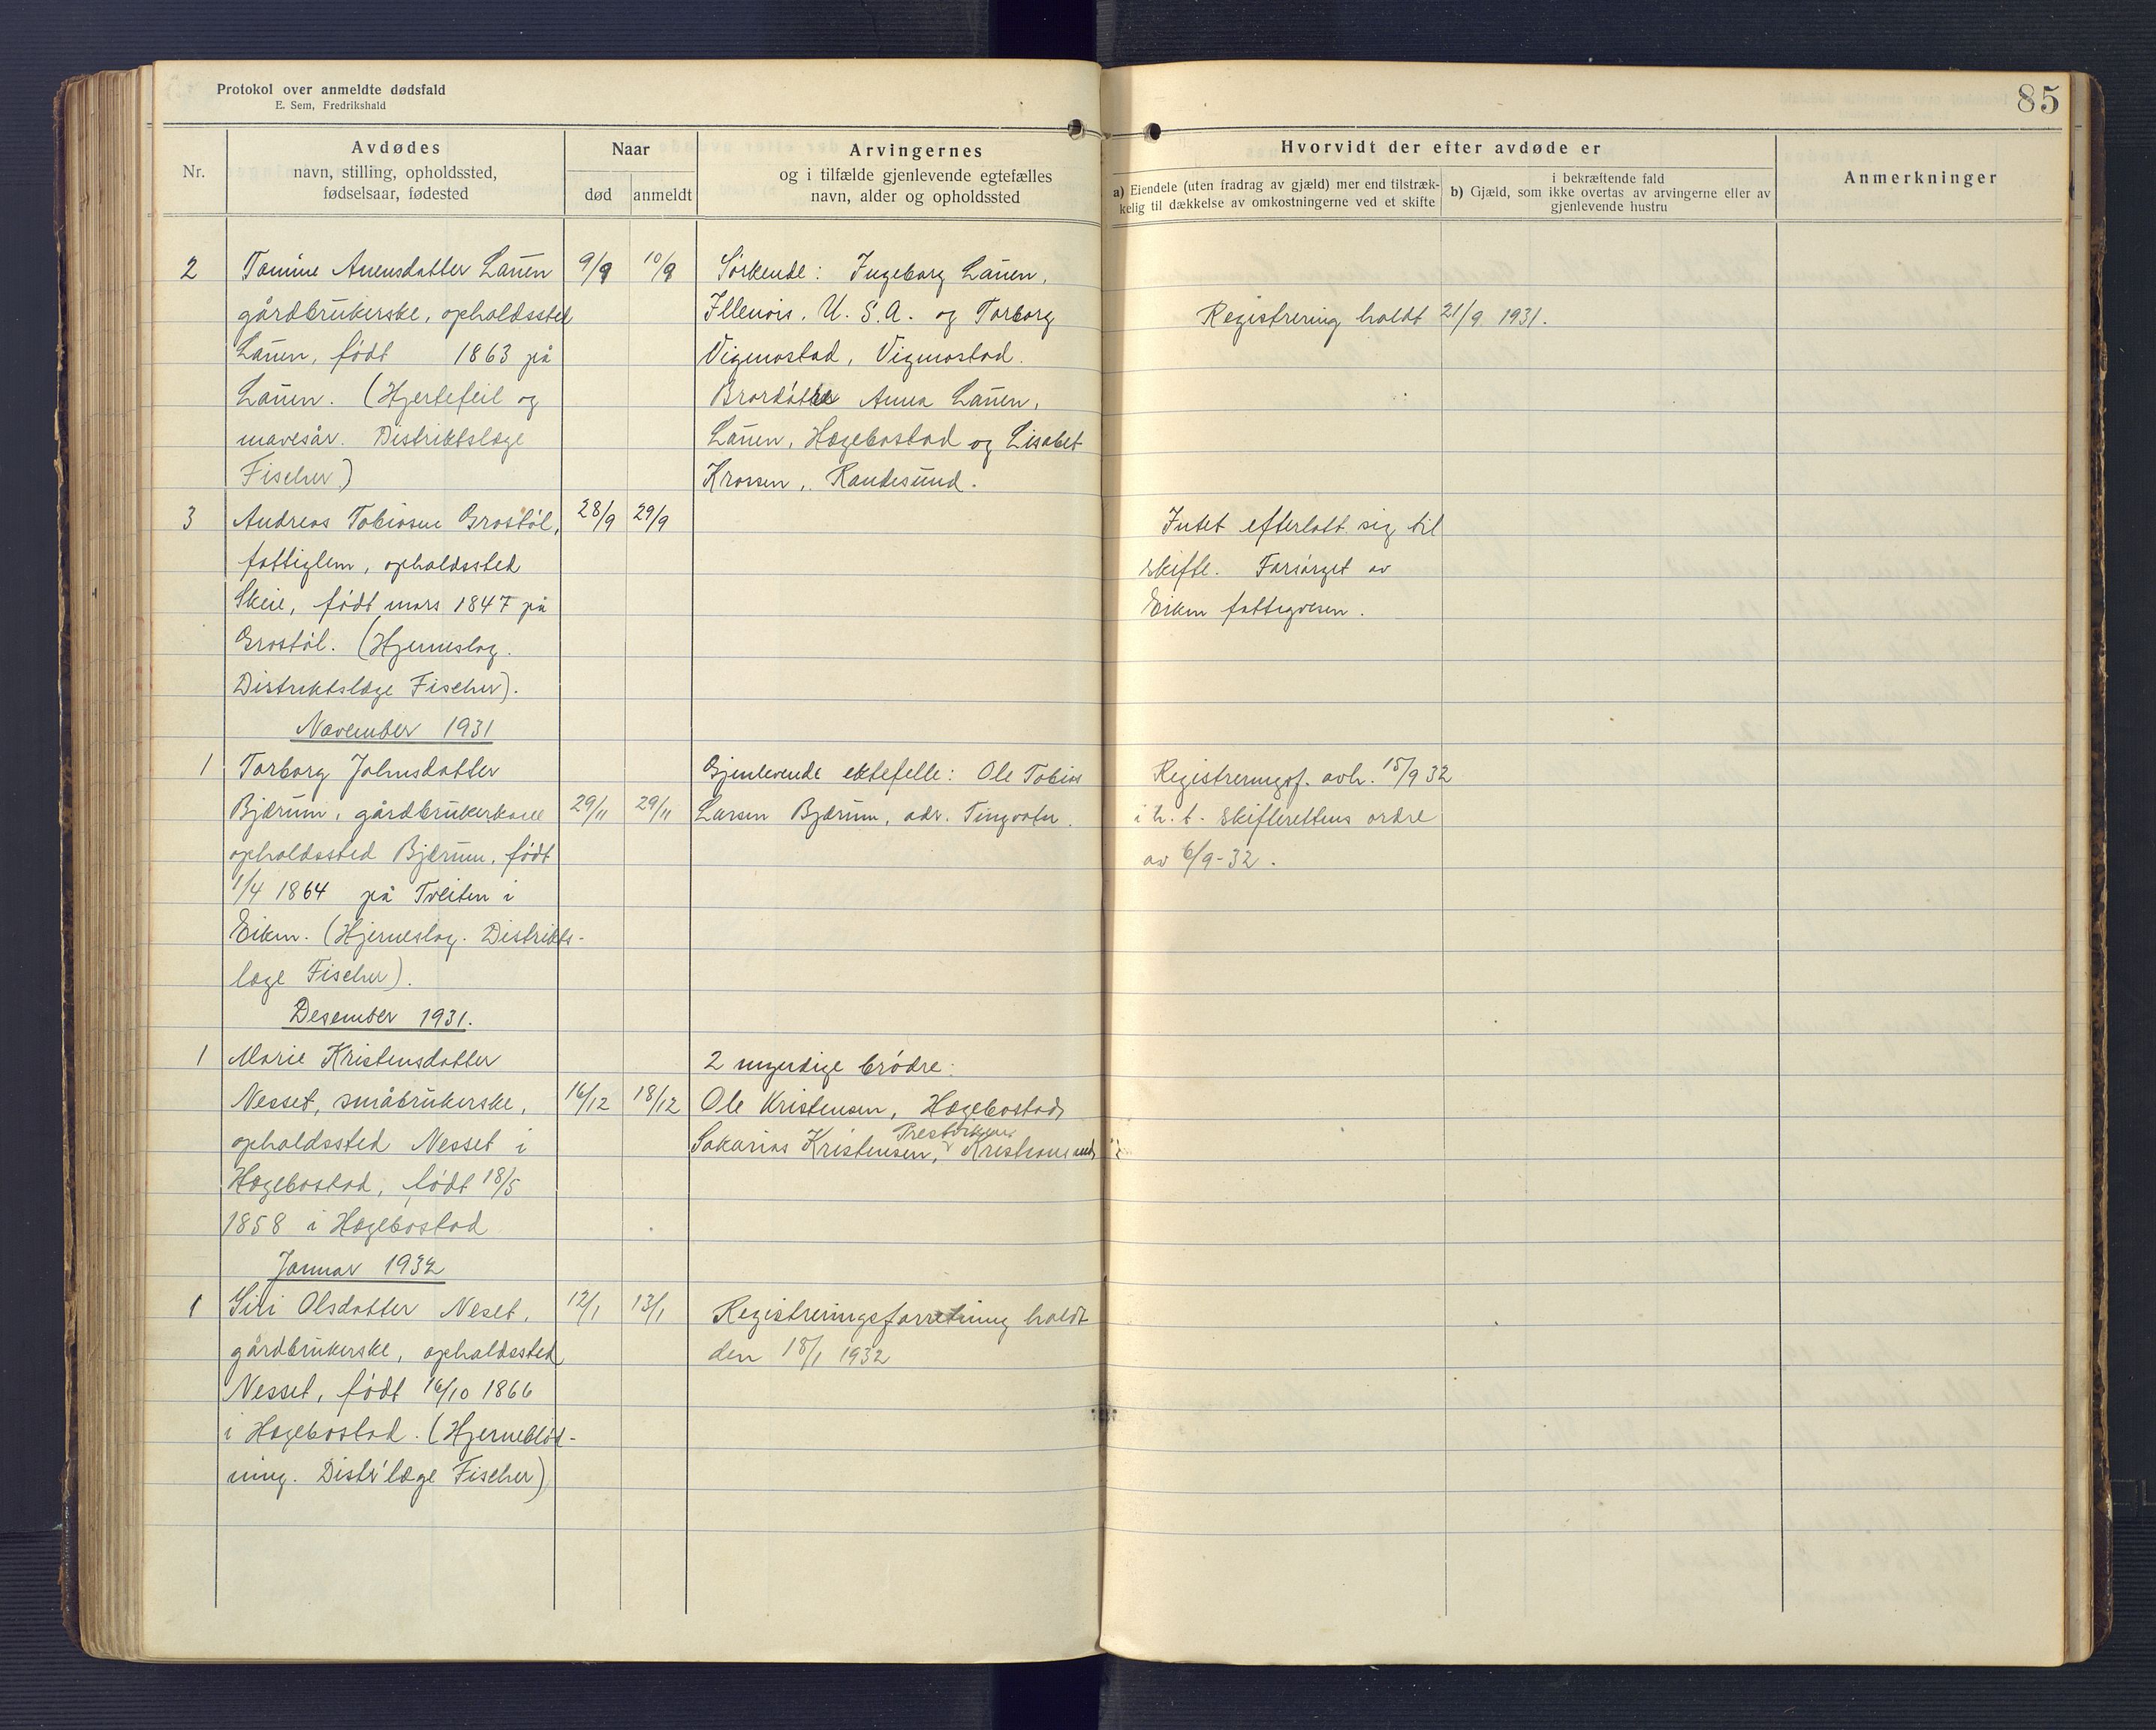 Protokol over anmeldte dødsfald
E. Sem, Fredrikshald
85
Nr.
Avdødes
navn, stilling, opholdssted,
fødselsaar, fødested
Naar
død
anmeldt
Arvingernes
og i tilfælde gjenlevende egtefælles
navn, alder og opholdssted
Hvorvidt der efter avdøde er
a) Eiendele (uten fradrag av gjæld) mer end tilstræk-
kelig til dækkelse av omkostningerne ved et skifte
i bekræftende fald
b) Gjæld, som ikke overtas av arvingerne eller av
gjenlevende hustru
Anmerkninger
2 Tomine Anensdatter Lauen 9/9 10/9
gårdbrukerske, opholdssted
Lauen, født 1863 på
Lauen. (Hjertefeil og
mavesår. Distriktslæge
Fischer)
Sørkende: Ingeborg Lauen,
Illenois, U.S.A. og Torborg
Vigmostad, Vigmostad.
Brordøtre Anna Lauen,
Lauen, Hægebostad og Lisabet
Krossen, Randesund.
Registrering holdt 21/9 1931.
3 Andreas Tobiasen Grostøl, 28/9 29/9
fattiglem, opholdssted
Skeie, født mars 1847 på
Grostøl. (Hjerneslag.
Distriktslæge Fischer).
Intet efterlatt sig til
skifte. Forsørget av
Eiken fattigvesen.
November 1931
1 Torborg Johnsdatter
Bjærum, gårdbrukerkone 29/11 29/11
opholdssted Bjærum, født
1/4 1864 på Tveiten i
Eiken. (Hjerneslag. Distrikts-
læge Fischer).
Gjenlevende ektefelle: Ole Tobias
Larsen Bjærum, adr. Tingvatn.
Registreringsf. avh. 15/9 32
i h. t. skifterettens ordre
av 6/9-32.
Desember 1931.
1 Marie Kristensdatter
Nesset, småbrukerske, 16/12 18/12
opholdssted Nesset i
Hægebostad, født 18/5
1858 i Hægebostad
2 myndige brødre:
Ole Kristensen, Hægebostad,
Sakarias Kristensen, Kristiansand
Januar 1932
1 Siri Olsdatter Neset, 12/1 13/1
gårdbrukerske, opholdssted
Nesset, født 16/10 1866
i Hægebostad. (Hjerneblød-
ning. Distr'læge Fischer)
Registreringsforretning holdt
den 18/1 1932